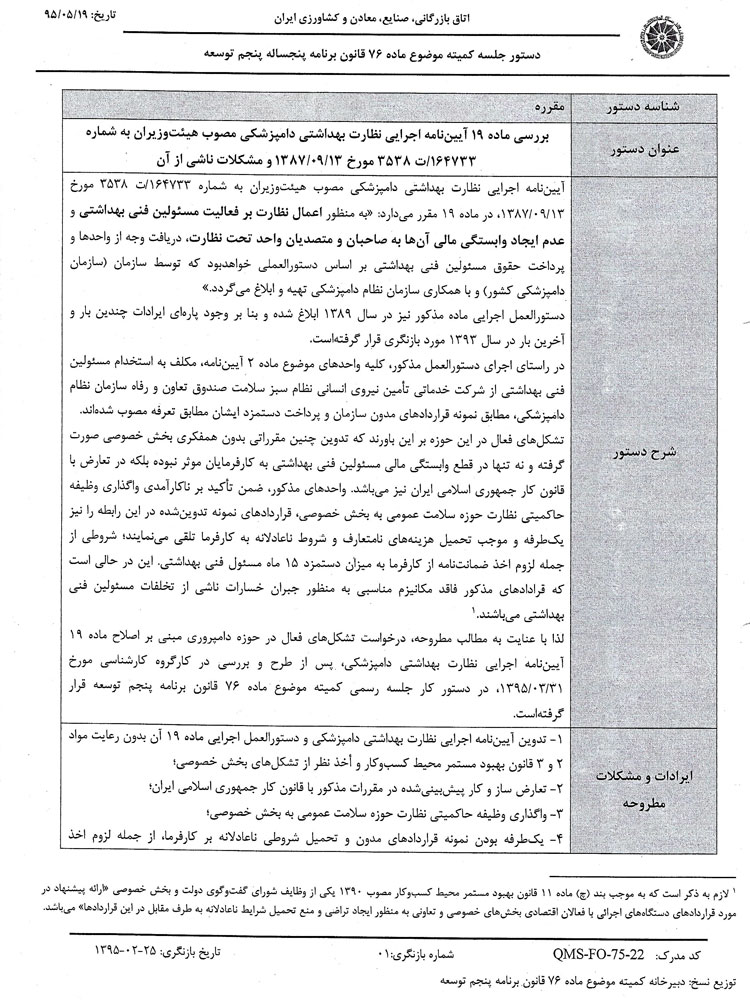 تاریخ: ۹۵/۰۵/۱۹
اتاق بازرگانی، صنایع، معادن و کشاورزی ایران
دستور جلسه کمیته موضوع ماده ۷۶ قانون برنامه پنجساله پنجم توسعه
شناسه دستور
مقرره
عنوان دستور
بررسی ماده ۱۹ آیین‌نامه اجرایی نظارت بهداشتی دامپزشکی مصوب هیئت‌وزیران به شماره
۱۶۴۷۳۳/ت ۳۵۳۸ مورخ ۱۳۸۷/۰۹/۱۳ و مشکلات ناشی از آن
شرح دستور
آیین‌نامه اجرایی نظارت بهداشتی دامپزشکی مصوب هیئت‌وزیران به شماره ۱۶۴۷۳۳/ت ۳۵۳۸ مورخ
۱۳۸۷/۰۹/۱۳، در ماده ۱۹ مقرر می‌دارد: «به منظور اعمال نظارت بر فعالیت مسئولین فنی بهداشتی و
عدم ایجاد وابستگی مالی آن‌ها به صاحبان و متصدیان واحد تحت نظارت، دریافت وجه از واحدها و
پرداخت حقوق مسئولین فنی بهداشتی بر اساس دستورالعملی خواهدبود که توسط سازمان (سازمان
دامپزشکی کشور) و با همکاری سازمان نظام دامپزشکی تهیه و ابلاغ می‌گردد.»
دستورالعمل اجرایی ماده مذکور نیز در سال ۱۳۸۹ ابلاغ شده و بنا بر وجود پاره‌ای ایرادات چندین بار و
آخرین بار در سال ۱۳۹۳ مورد بازنگری قرار گرفته‌است.
در راستای اجرای دستورالعمل مذکور، کلیه واحدهای موضوع ماده ۲ آیین‌نامه، مکلف به استخدام مسئولین
فنی بهداشتی از شرکت خدماتی تأمین نیروی انسانی نظام سبز سلامت صندوق تعاون و رفاه سازمان نظام
دامپزشکی، مطابق نمونه قراردادهای مدون سازمان و پرداخت دستمزد ایشان مطابق تعرفه مصوب شده‌اند.
تشکل‌های فعال در این حوزه بر این باورند که تدوین چنین مقرراتی بدون همفکری بخش خصوصی صورت
گرفته و نه تنها در قطع وابستگی مالی مسئولین فنی بهداشتی به کارفرمایان موثر نبوده بلکه در تعارض با
قانون کار جمهوری اسلامی ایران نیز می‌باشد. واحدهای مذکور، ضمن تأکید بر ناکارآمدی واگذاری وظیفه
حاکمیتی نظارت حوزه سلامت عمومی به بخش خصوصی، قراردادهای نمونه تدوین‌شده در این رابطه را نیز
یک‌طرفه و موجب تحمیل هزینه‌های نامتعارف و شروط ناعادلانه به کارفرما تلقی می‌نمایند؛ شروطی از
جمله لزوم اخذ ضمانت‌نامه از کارفرما به میزان دستمزد ۱۵ ماه مسئول فنی بهداشتی. این در حالی است
که قرادادهای مذکور فاقد مکانیزم مناسبی به منظور جبران خسارات ناشی از تخلفات مسئولین فنی
بهداشتی می‌باشند.۱
لذا با عنایت به مطالب مطروحه، درخواست تشکل‌های فعال در حوزه دامپروری مبنی بر اصلاح ماده ۱۹
آیین‌نامه اجرایی نظارت بهداشتی دامپزشکی، پس از طرح و بررسی در کارگروه کارشناسی مورخ
۱۳۹۵/۰۳/۳۱، در دستور کار جلسه رسمی کمیته موضوع ماده ۷۶ قانون برنامه پنجم توسعه قرار
گرفته‌است.
ایرادات و مشکلات
مطروحه
۱- تدوین آیین‌نامه اجرایی نظارت بهداشتی دامپزشکی و دستورالعمل اجرایی ماده ۱۹ آن بدون رعایت مواد
۲ و ۳ قانون بهبود مستمر محیط کسب‌وکار و أخذ نظر از تشکل‌های بخش خصوصی؛
۲- تعارض ساز و کار پیش‌بینی‌شده در مقررات مذکور با قانون کار جمهوری اسلامی ایران؛
۳- واگذاری وظیفه حاکمیتی نظارت حوزه سلامت عمومی به بخش خصوصی؛
۴- یک‌طرفه بودن نمونه قراردادهای مدون و تحمیل شروطی ناعادلانه بر کارفرما، از جمله لزوم اخذ
۱ لازم به ذکر است که به موجب بند (چ) ماده ۱۱ قانون بهبود مستمر محیط کسب‌وکار مصوب ۱۳۹۰ یکی از وظایف شورای گفت‌وگوی دولت و بخش خصوصی «ارائه پیشنهاد در
مورد قراردادهای دستگاه‌های اجرائی با فعالان اقتصادی بخش‌های خصوصی و تعاونی به منظور ایجاد تراضی و منع تحمیل شرایط ناعادلانه به طرف مقابل در این قراردادها» می‌باشد.
کد مدرک: QMS-FO-75-22
شماره بازنگری: ۰۱
تاریخ بازنگری: ۲۵-۰۲-۱۳۹۵
توزیع نسخ: دبیرخانه کمیته موضوع ماده ۷۶ قانون برنامه پنجم توسعه